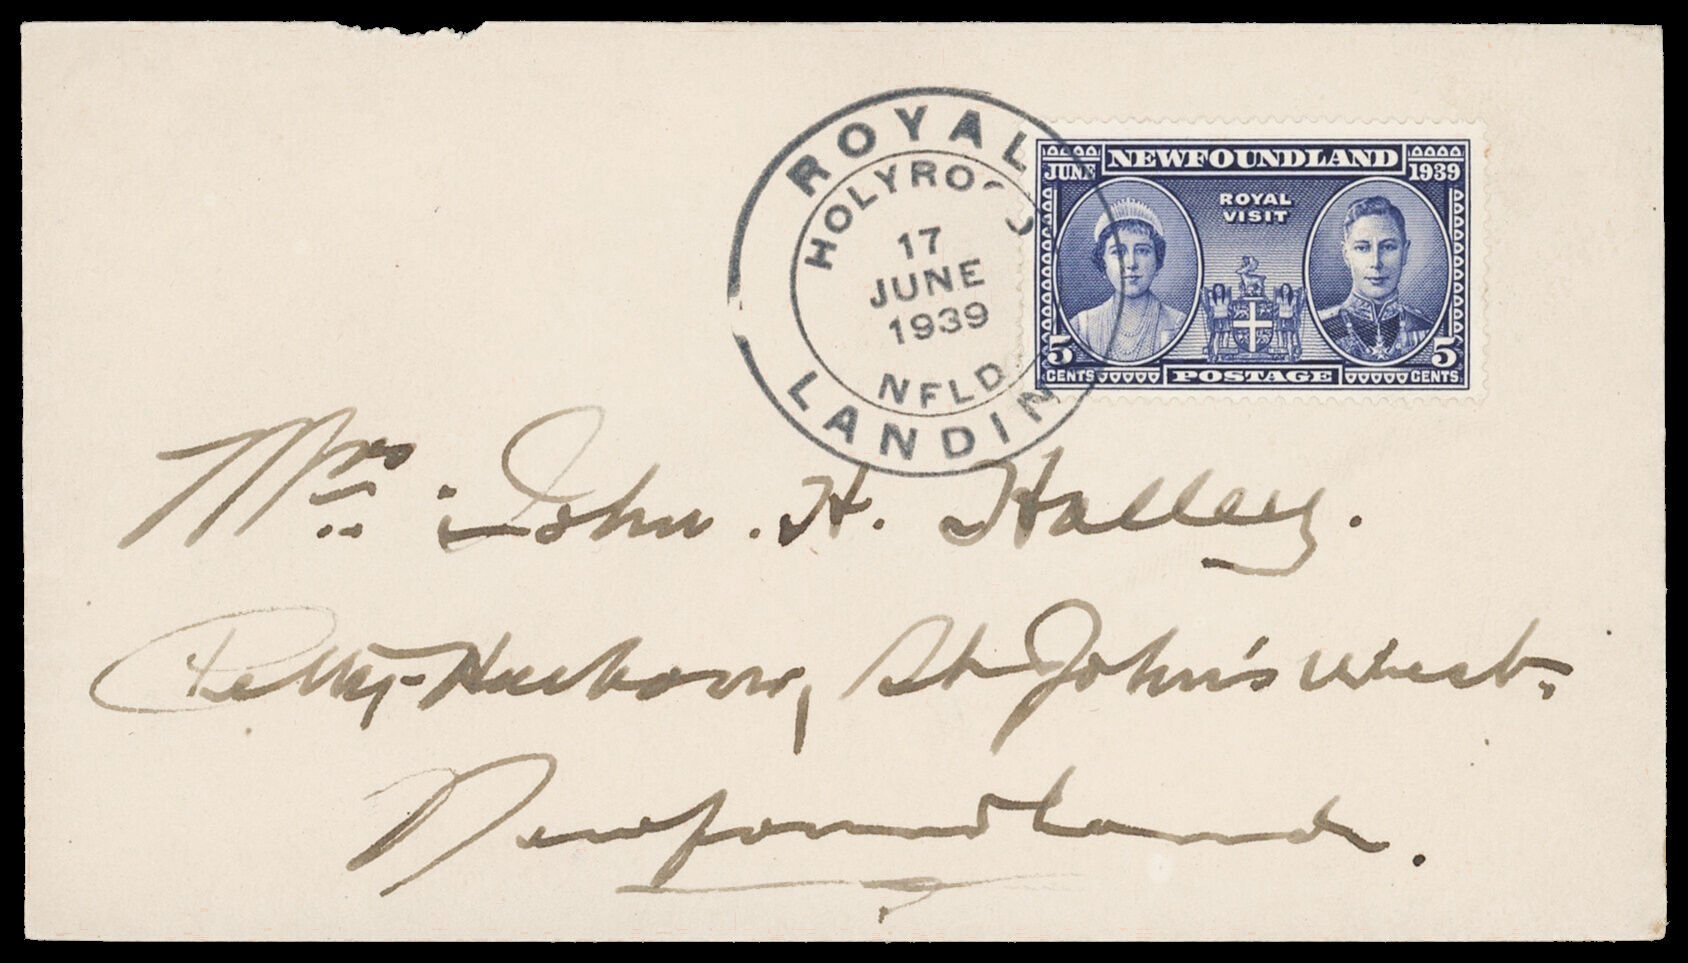 ROYAL
HOLYROOD
17
JUNE
1939
NFLD.
LANDING
NEWFOUNDLAND
JUNE 1939
ROYAL
VISIT
5 5
CENTS POSTAGE CENTS
Mrs. John. H. Halley.
Petty-Harbour, St John's West.
Newfoundland.